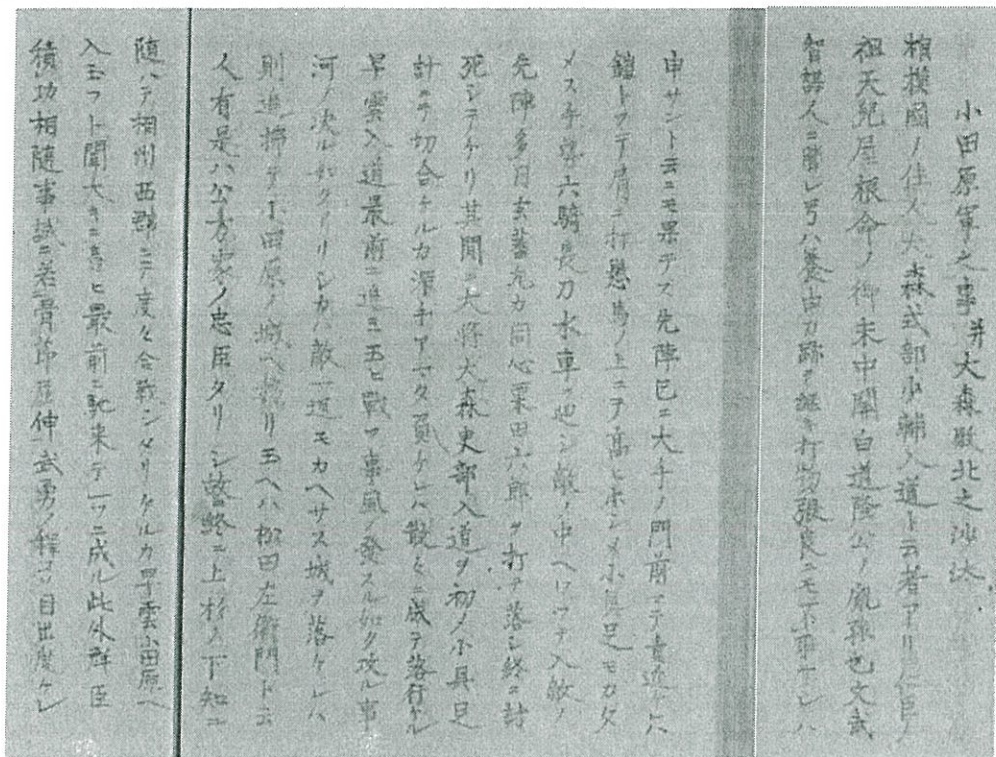 小田原軍之事并大森敗北之沙汰
相摸國ノ住人大森式部小輔入道ト云者アリ仁臣ノ
祖天兒屋根命ノ御末中關白道隆公ノ胤孫也文武
智謀人ニ勝レ弓ハ養由カ跡ヲ継キ打物張良ニモ不耻ケレハ
申サント云ニモ果テス先陣已ニ大手ノ門前マテ責近ケハ
鎧トツテ肩ニ打懸馬ノ上ニテ高ヒホシメ小具足モカタ
メス子專六騎長刀水車ニ廻シ敵ノ中ヘワツテ入敵ノ
先陣多目玄蕃允カ同心栗田六郎ヲ打テ落シ終ニ討
死シテケリ其間ニ大將大森吏部入道ヲ初ノ小具足
計ニテ切合ケルカ深手アマタ負ケレハ散々ニ成テ落行ケル
早雲入道最前ニ進ミ玉ヒ戰フ事風ノ發スル如ク攻ル事
河ノ決ル如クナリシカハ敵一道モカヘサス城ヲ落ケレハ
則追掃テ小田原ノ城ヘ移リ玉ヘハ松田左衛門ト云
人有是ハ公方家ノ忠臣タリシ終ニ上杉ノ下知ニ
随ハテ相州西郡ニテ度々合戰シメリケルカ早雲小田原ヘ
入玉フト聞大キニ喜ヒ最前ニ馳来テ一ツニ成ル此外群臣
積功相随事誠ニ老骨節屈伸武勇ノ程コソ目出度ケレ